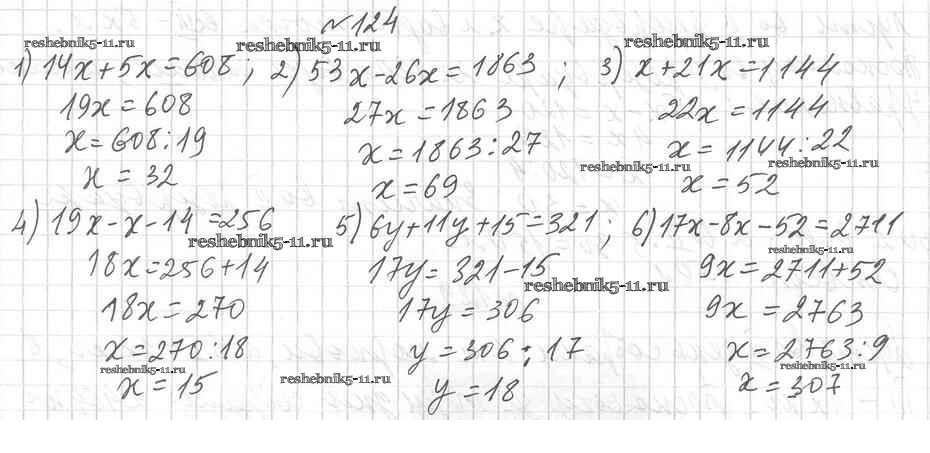 №124
reshebnik5-11.ru reshebnik5-11.ru reshebnik5-11.ru
1) 14x+5x=608 ; 2) 53x-26x=1863 ; 3) x+21x=1144
19x=608 27x=1863 22x=1144
x=608:19 x=1863:27 x=1144:22
reshebnik5-11.ru reshebnik5-11.ru
x=32 x=69 x=52
4) 19x-x-14=256 5) 6y+11y+15=321 ; 6) 17x-8x-52=2711
reshebnik5-11.ru reshebnik5-11.ru
18x=256+14 17y=321-15 9x=2711+52
reshebnik5-11.ru
18x=270 17y=306 9x=2763
x=270:18 y=306:17 x=2763:9
reshebnik5-11.ru reshebnik5-11.ru reshebnik5-11.ru
x=15 y=18 x=307